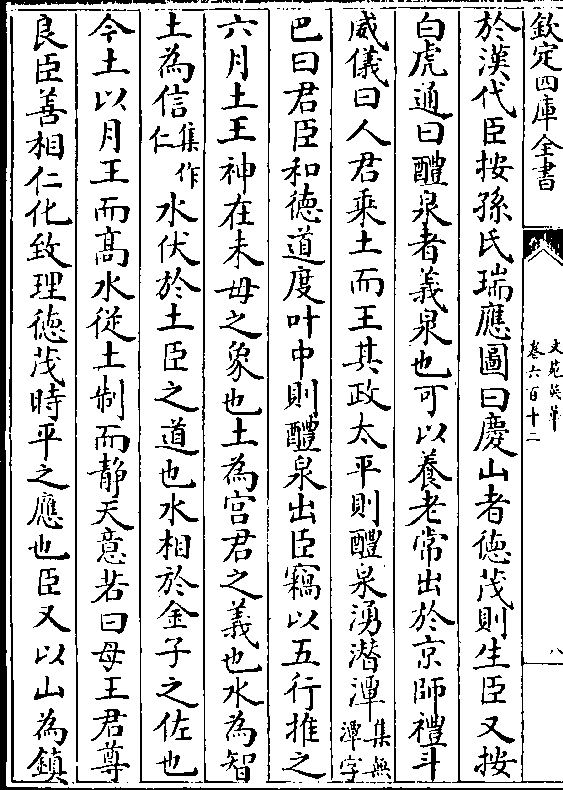 欽定四庫全書
文苑英華
卷六百十二
八
於漢代臣按孫氏瑞應圖曰慶山者徳茂則生臣又按
白虎通曰醴泉者義泉也可以養老常出於京師禮斗
威儀曰人君乘土而王其政太平則醴泉湧潜潭集無潭字
巴曰君臣和徳道度叶中則醴泉出臣竊以五行推之
六月土王神在未母之象也土為宫君之義也水為智
土為信集作仁水伏於土臣之道也水相於金子之佐也
今土以月王而髙水從土制而静天意若曰母王君尊
良臣善相仁化致理徳茂時平之應也臣又以山為鎮